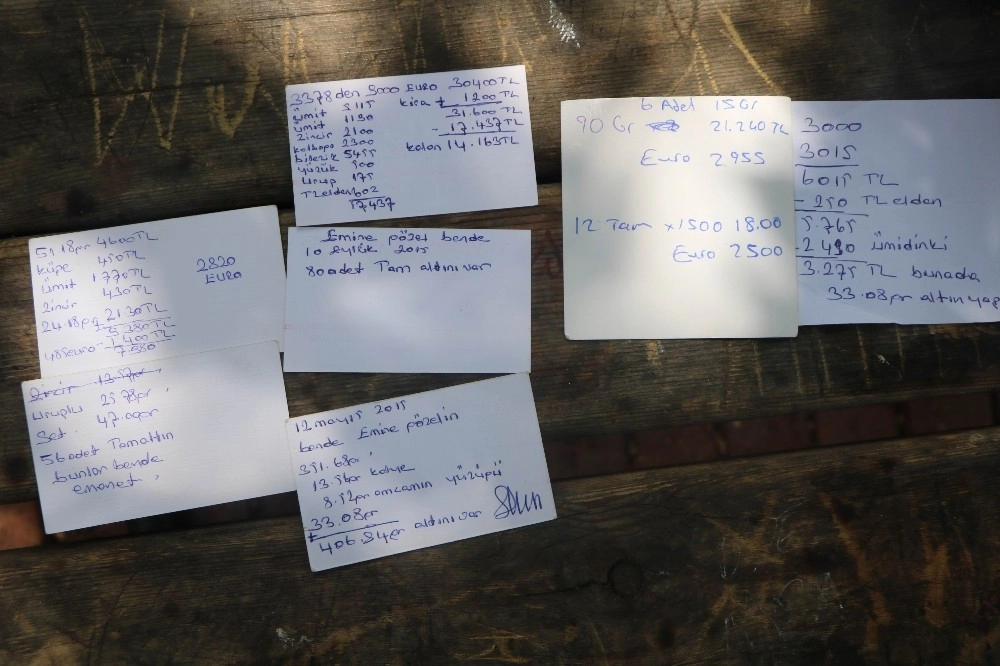 3378 den 9000 EURO 30400TL
Ümit 5115 kira + 1200 TL
Ümit 1130 31.600 TL
Zincir 2100 - 17.437TL
kolbapa 2300 kalan 14.163TL
bilezik 5455
yüzük 500
urup 175
TL elden 602
17437
6 Adet 15 Gr
90 Gr 21.240 TL
Euro 2955
12 Tam x1500 18.00
Euro 2500
3000
3015
6015 TL
- 250 TL elden
5.765
- 2490 ümidinki
3.275 TL bunada
33.08gr altın yap
51.18gr 4600TL
küpe 450TL
Ümit 1770TL
Zincir 430TL
24.18gr 2130TL
9380TL
485euro - 1400TL
7.980
2820
EURO
Emine gözel bende
10 eylül 2015
80 adet Tam altını var
Zincir 13.57gr
urupllu 25.78gr
Set 47.00gr
56 adet Tam altın
bunlar bende
emanet
12 mayıs 2015
bende Emine gözelin
351.68gr
13.56gr kolye
8.52gr amcanın yüzüğü
33.08gr
+ 406.84gr altını var